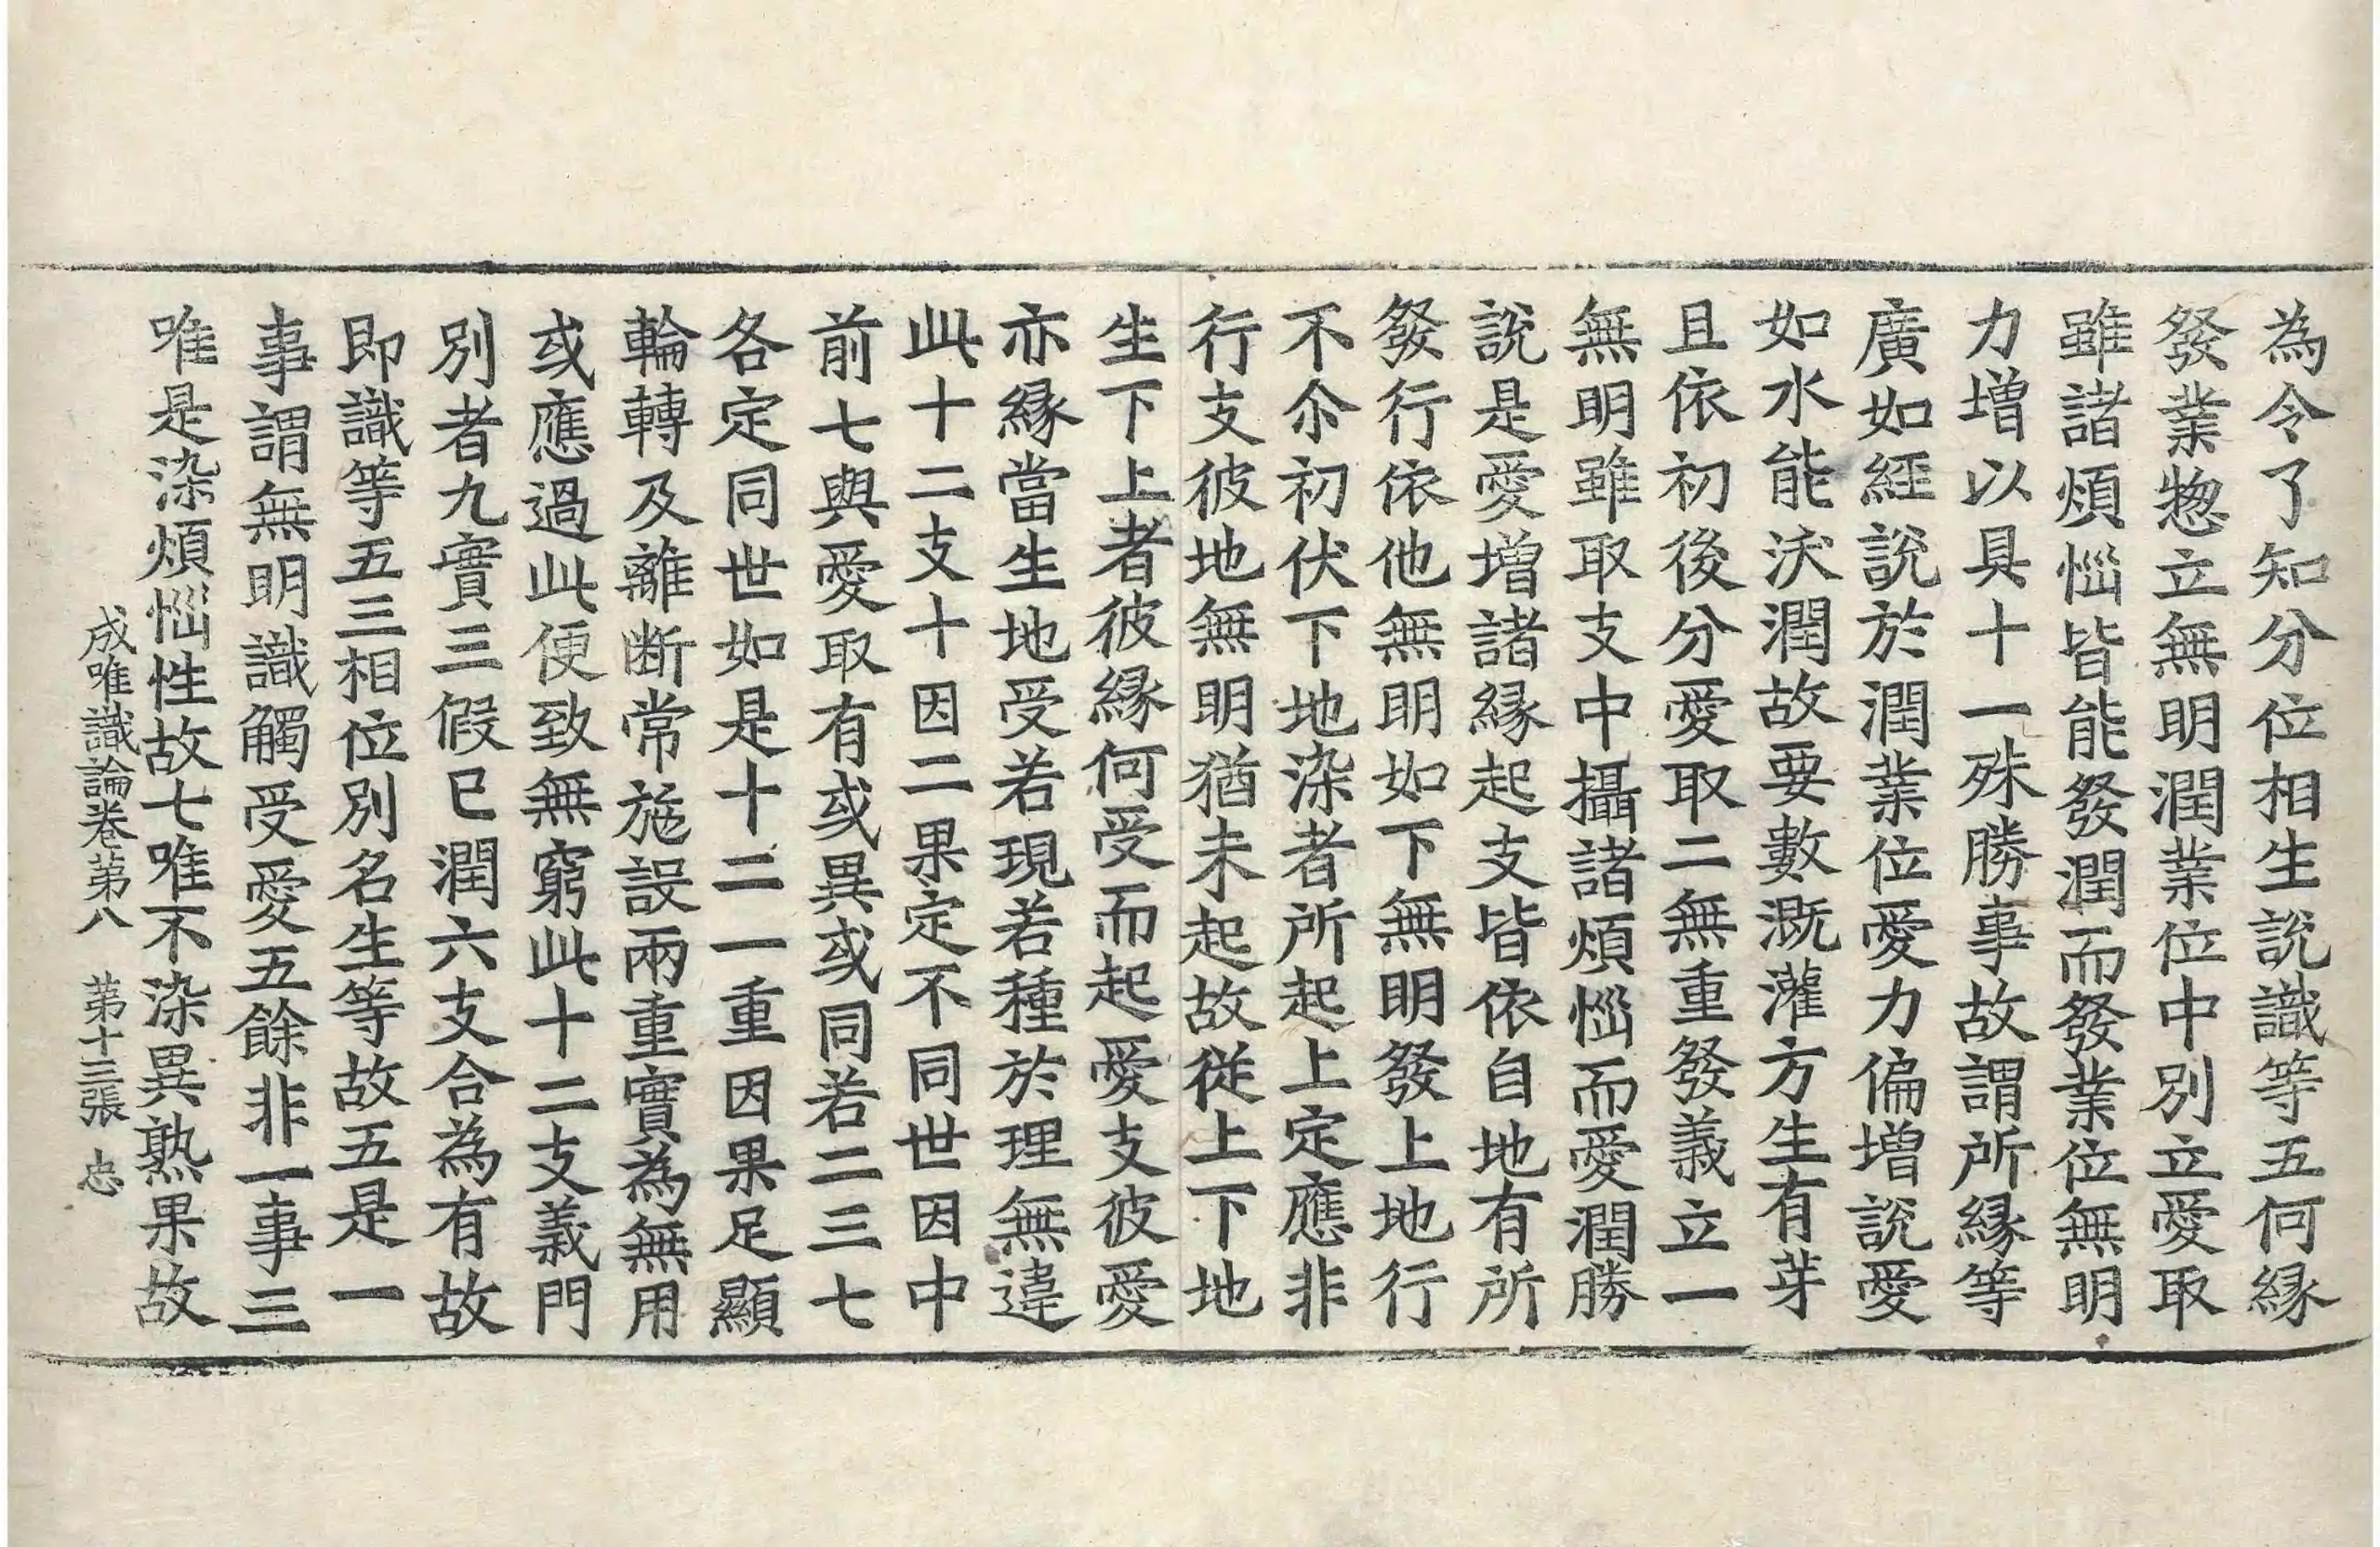 為令了知分位相生說識等五何緣
發業惣立無明潤業位中別立愛取
雖諸煩惱皆能發潤而發業位無明
力增以具十一殊勝事故謂所緣等
廣如經說於潤業位愛力偏增說愛
如水能沃潤故要數溉灌方生有芽
且依初後分愛取二無重發義立一
無明雖取支中攝諸煩惱而愛潤勝
說是愛增諸緣起支皆依自地有所
發行依他無明如下無明發上地行
不尒初伏下地染者所起上定應非
行支彼地無明猶未起故從上下地
生下上者彼緣何受而起愛支彼愛
亦緣當生地受若現若種於理無違
此十二支十因二果定不同世因中
前七與愛取有或異或同若二三七
各定同世如是十二一重因果足顯
輪轉及離断常施設兩重實為無用
或應過此便致無窮此十二支義門
別者九實三假已潤六支合為有故
即識等五三相位別名生等故五是一
事謂無明識觸受愛五餘非一事三
唯是染煩惱性故七唯不染異熟果故
成唯識論卷第八 第十三張 忠